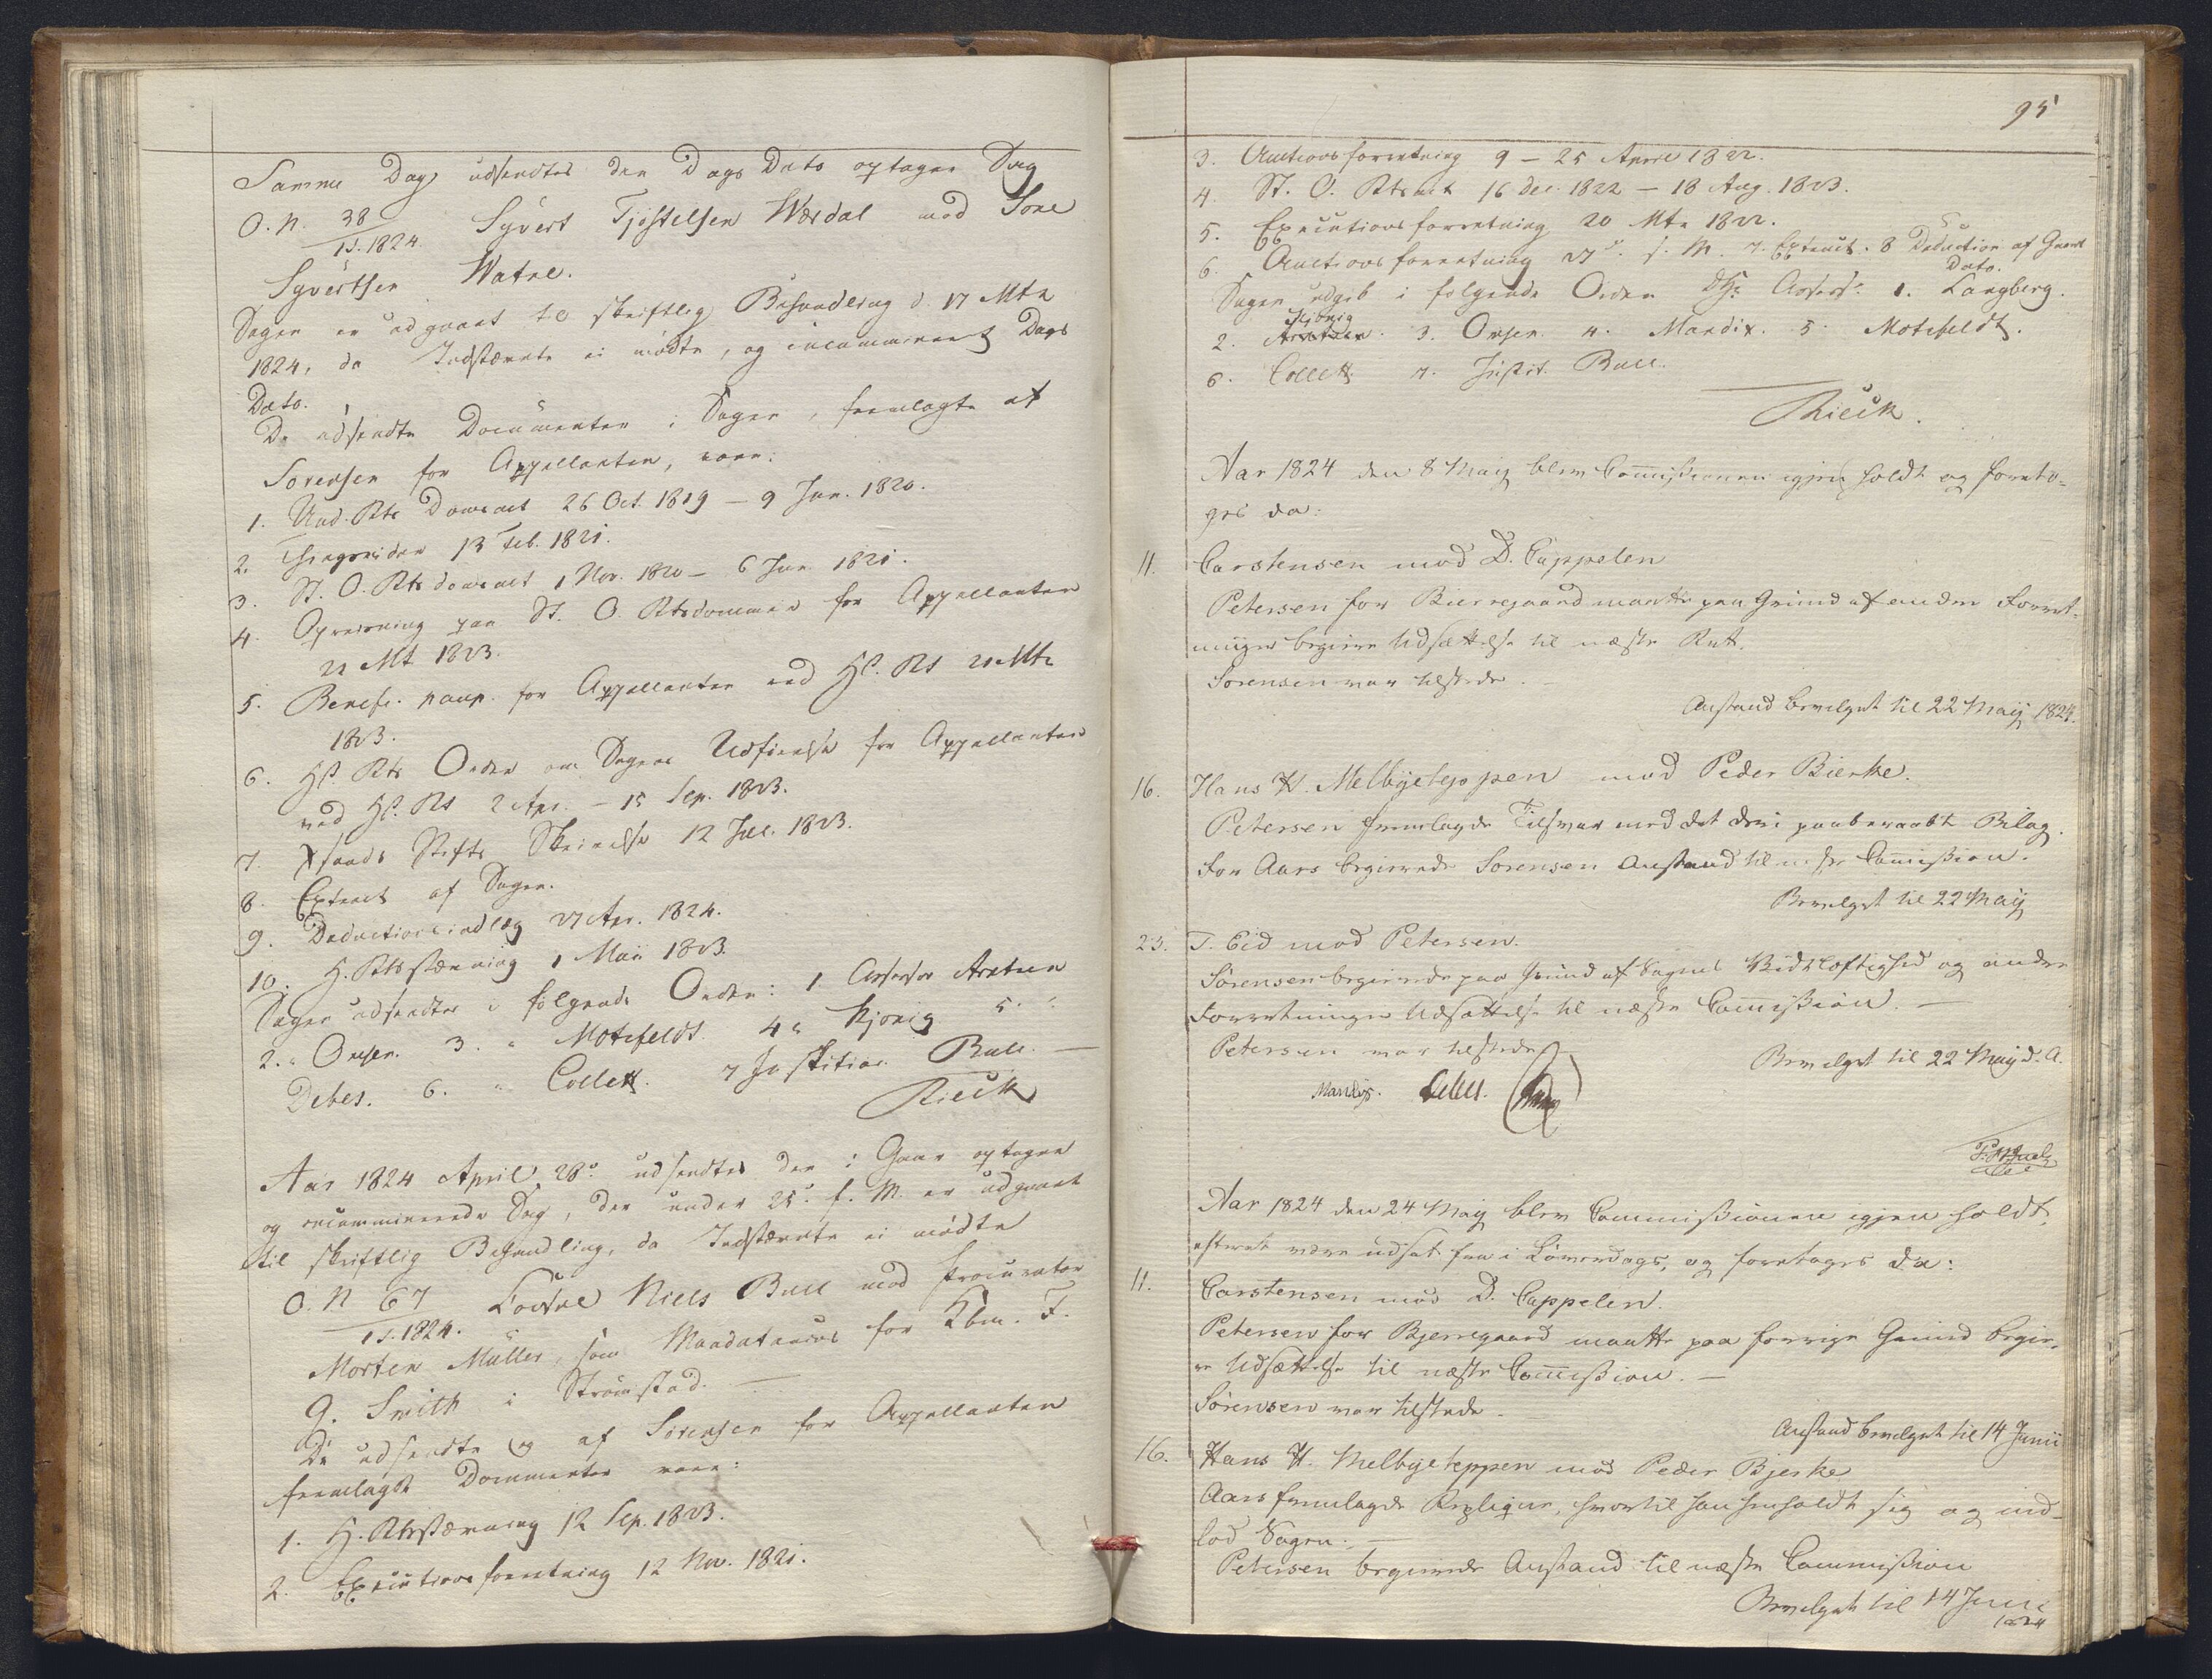 Samme Dag udsendtes den Dags Dato optagne Sag
O. N. 38/1824. Syvert Tjøstelsen Wærdal mod Tore
Syvertsen Watne.
Sagen er udgaaet til skriftlig Behandling d. 17 Mts
1824, da Indstævnte ei mødte, og incammineret Dags
Dato.
De udsendte Documenter i Sagen, fremlagte af
Sörensen for Appellanten, vare:
1. Und. Rts Domsact 26 Oct. 1819 – 9 Jan. 1820.
2. 13 Feb. 1821.
3. St. O. Rts domsact 1 Nov. 1820 – 6 Jun 1821.
4. Opreisning paa St. O. Rtsdommen for Appellanten
22 Mt 1823.
5. Benefi. paup. for Appellanten ved Hst. Rt 21 Mts
1823.
6. Hst. Rts Orden om Sagens Udførelse for Appellanten
ved Hst. Rt 2 Apr. – 15 Sep. 1823.
7. Xsands Stifts Skrivelse 12 Jul. 1823.
8. Extract af Sagen.
9. Deductionsindlæg 27 Apr. 1824.
10. H. Rtsstævning 1 Maii 1823.
Sagen udsendtes i følgende Orden: 1 Assessor Arntzen
2. " Omsen. 3. " Motzfeldt. 4 " Mjorig 5. "
Debes. 6. " Collett. 7 Justitiar. Bull. —
Rieck
Aar 1824 April 28de udsendtes den i Gaar optagne
og incaminerede Sag, der under 25de f. M. er udgaaet
til skriftlig Behandling, da Indstævnte ei mødte
O. N 67/1824. Niels Bull mod Procurator
Morten Müller, som Mandatarius for Kbm. F.
G. Smith i Strömstad. —
De udsendte og af Sörensen for Appellanten
fremlagte Documenter vare:
1. H. Rtsstævning 12 Sep. 1823.
2. Executionsforretning 12 Nov. 1821.
95
3. Auctionsforretning 9 – 25 April 1822.
4. St. O. Rtsact 16 Dec. 1822 – 18 Aug. 1823.
5. Executionsforretning 20 Mts 1822.
6. Auctionsforretning 27de s. M. 7. Extract. 8 Deduction af Gaars
Dato.
Sagen udgik i følgende Orden Hr. Assess. 1. Langberg.
2. 3. Omsen. 4. Mandix. 5. Motzfeldt.
6. Collett. 7. Justit. Bull.
Rieck.
Aar 1824 den 8 Maij blev Commissionen igjen holdt og foreto-
ges da:
11. Carstensen mod D. Cappelen
Petersen for Bierregaard maatte paa Grund af andre Forret-
ninger begiere Udsættelse til næste Rett.
Sörensen var tilstede. —
Anstand bevilget til 22 Maij 1824.
16. Hans H. Melbyeteppen mod Peder Bierke.
Petersen fremlagde Tilsvar med det deri paaberaabt Bilag.
For Aars begierede Sorensen Anstand til næste Commission.
Bevilget til 22 Maij
23. T. Eid mod Petersen.
Sörensen begierede paa Grund af Sagens Vidtløftighed og andre
Forretninger Udsættelse til næste Commission. —
Petersen var tilstede
Bevilget til 22 Maij d. A.
Mandix. Debes.
Aar 1824 den 24 Maij blev Commissionen igjen holdt,
efterat være udsat fra i Löverdags, og foretoges da:
11. Carstensen mod D. Cappelen.
Petersen for Bjerregaard maatte paa forrige Grund begie-
re Udsættelse til næste Commission. —
Sörensen var tilstede.
Anstand bevilget til 14 Junii
16. Hans H. Melbyeteppen mod Peder Bjerke
Aars fremlagde Replique, hvortil han henholdt sig og ind-
lod Sagen. —
Petersen begierede Anstand til næste Commission
Bevilget til 14 Junii
1824